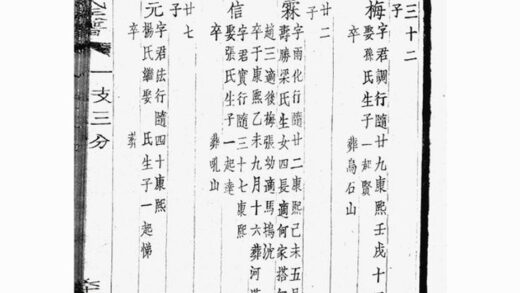 三十二
子
梅
字君調行隨廿九康熙壬戌十
娶孫氏生子一起賢
卒 葬烏石山
廿二
子
霖
字雨化行隨廿二康熙己未五月
壽勝梁氏生女四長適何家搭
趙三適後梅張幼適馬塢沈
卒于康熙乙未九月十六葬河
信
字君實行隨三十七康熙
娶張氏生子一起達
卒 葬吼山
廿七
子
元
字君法行隨四十康熙
楊氏繼娶 氏生子一起悌
卒 葬
一支三分